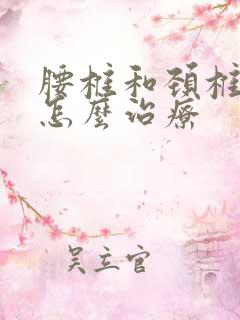 腰椎和颈椎
怎麼治療
吴立官